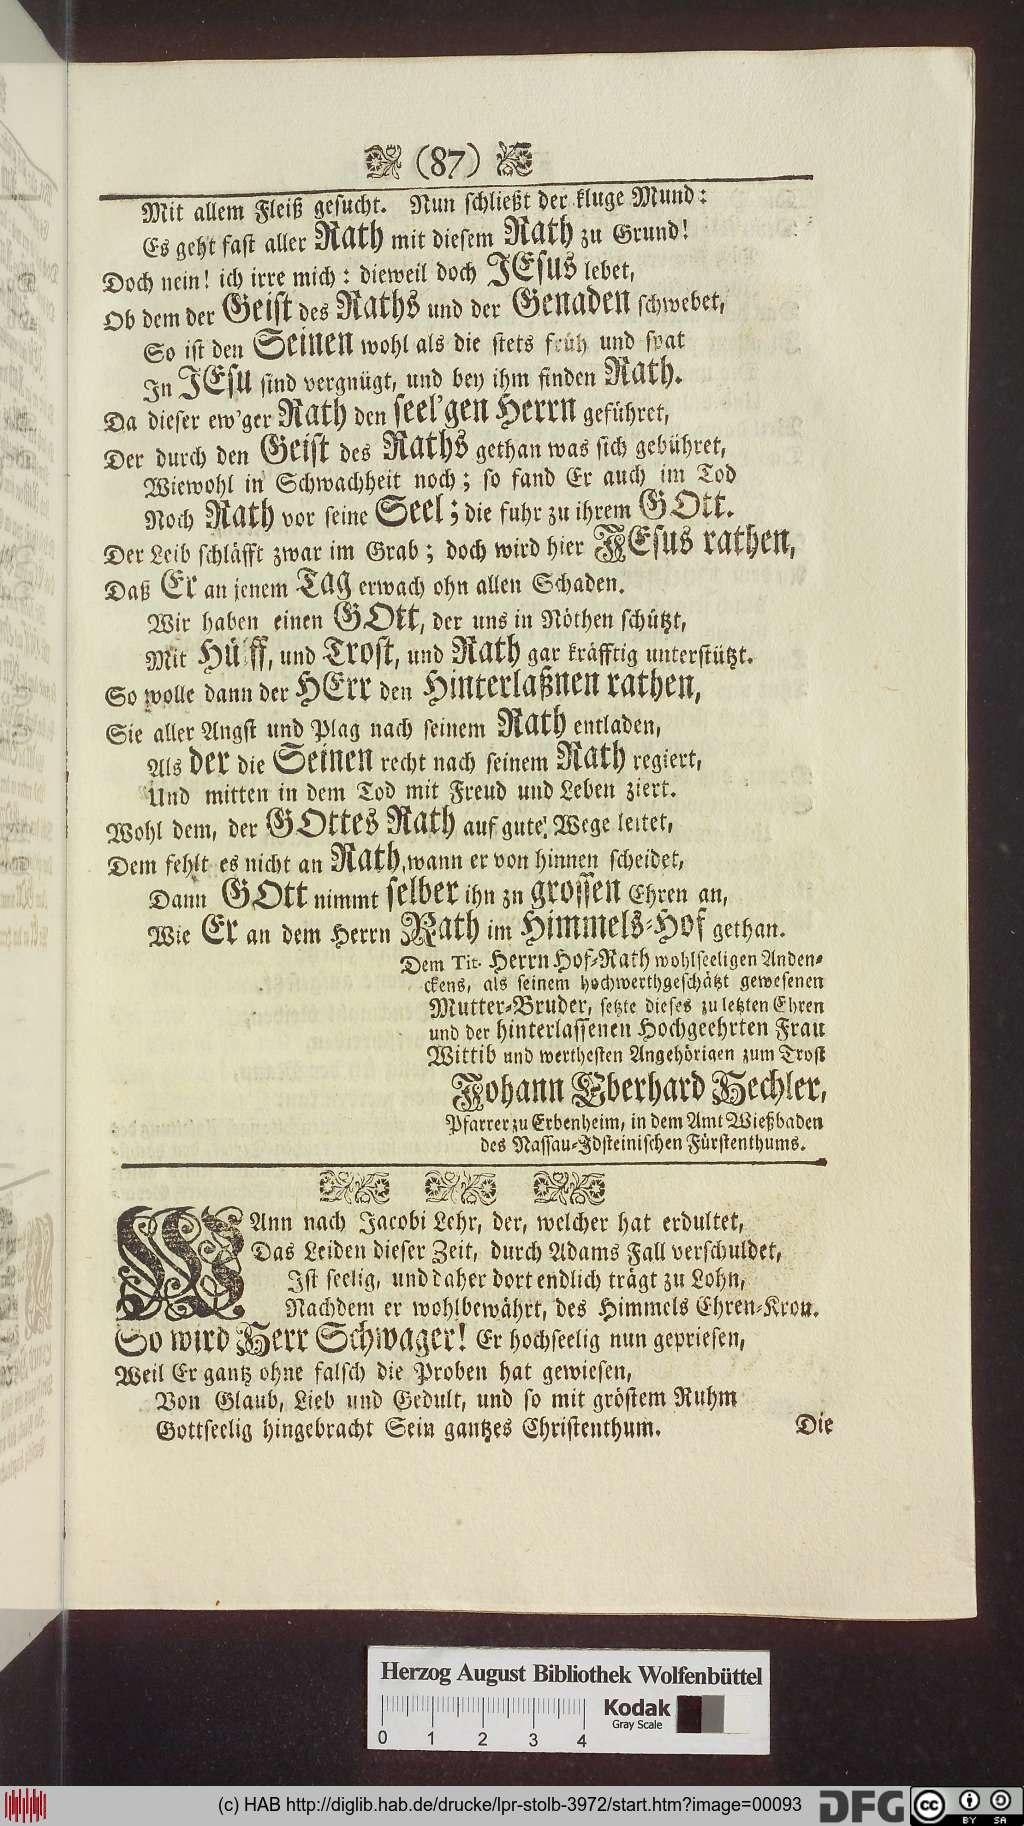 (87)
Mit allem Fleiß gesucht. Nun schließt der kluge Mund:
Es geht fast aller Rath mit diesem Rath zu Grund!
Doch nein! ich irre mich: dieweil doch JEsus lebet,
Ob dem der Geist des Raths und der Genaden schwebet,
So ist den Seinen wohl als die stets früh und spat
In JEsu sind vergnügt, und bey ihm finden Rath.
Da dieser ew'ger Rath den seel'gen Herrn geführet,
Der durch den Geist des Raths gethan was sich gebühret,
Wiewohl in Schwachheit noch; so fand Er auch im Tod
Noch Rath vor seine Seel; die fuhr zu ihrem GOtt.
Der Leib schläfft zwar im Grab; doch wird hier JEsus rathen,
Daß Er an jenem Tag erwach ohn allen Schaden.
Wir haben einen GOtt, der uns in Nöthen schützt,
Mit Hülff, und Trost, und Rath gar kräfftig unterstützt.
So wolle dann der HErr den Hinterlaßnen rathen,
Sie aller Angst und Plag nach seinem Rath entladen,
Als der die Seinen recht nach seinem Rath regiert,
Und mitten in dem Tod mit Freud und Leben ziert.
Wohl dem, der GOttes Rath auf gute Wege leitet,
Dem fehlt es nicht an Rath, wann er von hinnen scheidet,
Dann GOtt nimmt selber ihn zn grossen Ehren an,
Wie Er an dem Herrn Rath im Himmels-Hof gethan.
Dem Tit. Herrn Hof-Rath wohlseeligen Anden-
ckens, als seinem hochwerthgeschätzt gewesenen
Mutter-Bruder, setzte dieses zu letzten Ehren
und der hinterlassenen Hochgeehrten Frau
Wittib und werthesten Angehörigen zum Trost
Johann Eberhard Hechler,
Pfarrer zu Erbenheim, in dem Amt Wießbaden
des Nassau-Idsteinischen Fürstenthums.
WAnn nach Jacobi Lehr, der, welcher hat erdultet,
Das Leiden dieser Zeit, durch Adams Fall verschuldet,
Ist seelig, und daher dort endlich trägt zu Lohn,
Nachdem er wohlbewährt, des Himmels Ehren-Kron.
So wird Herr Schwager! Er hochseelig nun gepriesen,
Weil Er gantz ohne falsch die Proben hat gewiesen,
Von Glaub, Lieb und Gedult, und so mit gröstem Ruhm
Gottseelig hingebracht Sein gantzes Christenthum.
Die
Herzog August Bibliothek Wolfenbüttel
Kodak
Gray Scale
0 1 2 3 4
(c) HAB http://diglib.hab.de/drucke/lpr-stolb-3972/start.htm?image=00093
DFG
cc BY SA